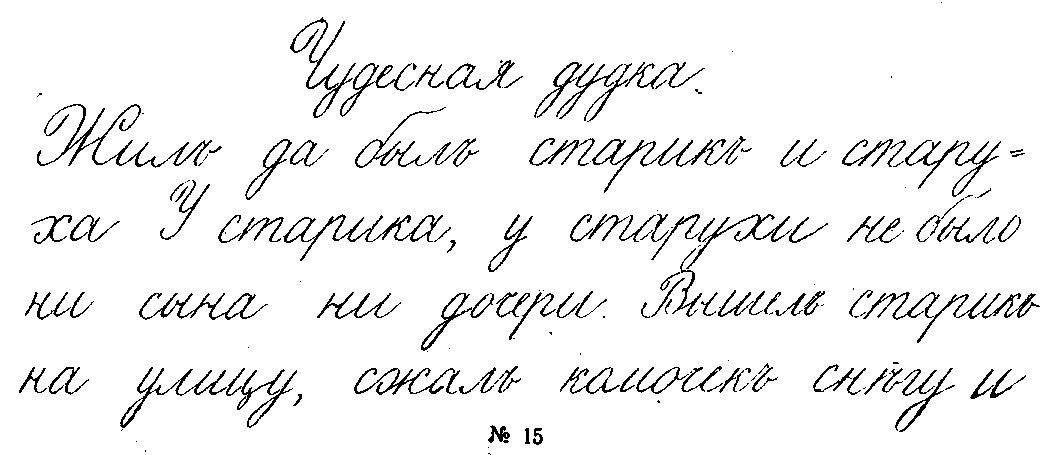 Чудесная дудка.
Жилъ да былъ старикъ и стару=
ха У старика, у старухи не было
ни сына ни дочери. Вышелъ старикъ
на улицу, сжалъ комочекъ снѣгу и
№ 15